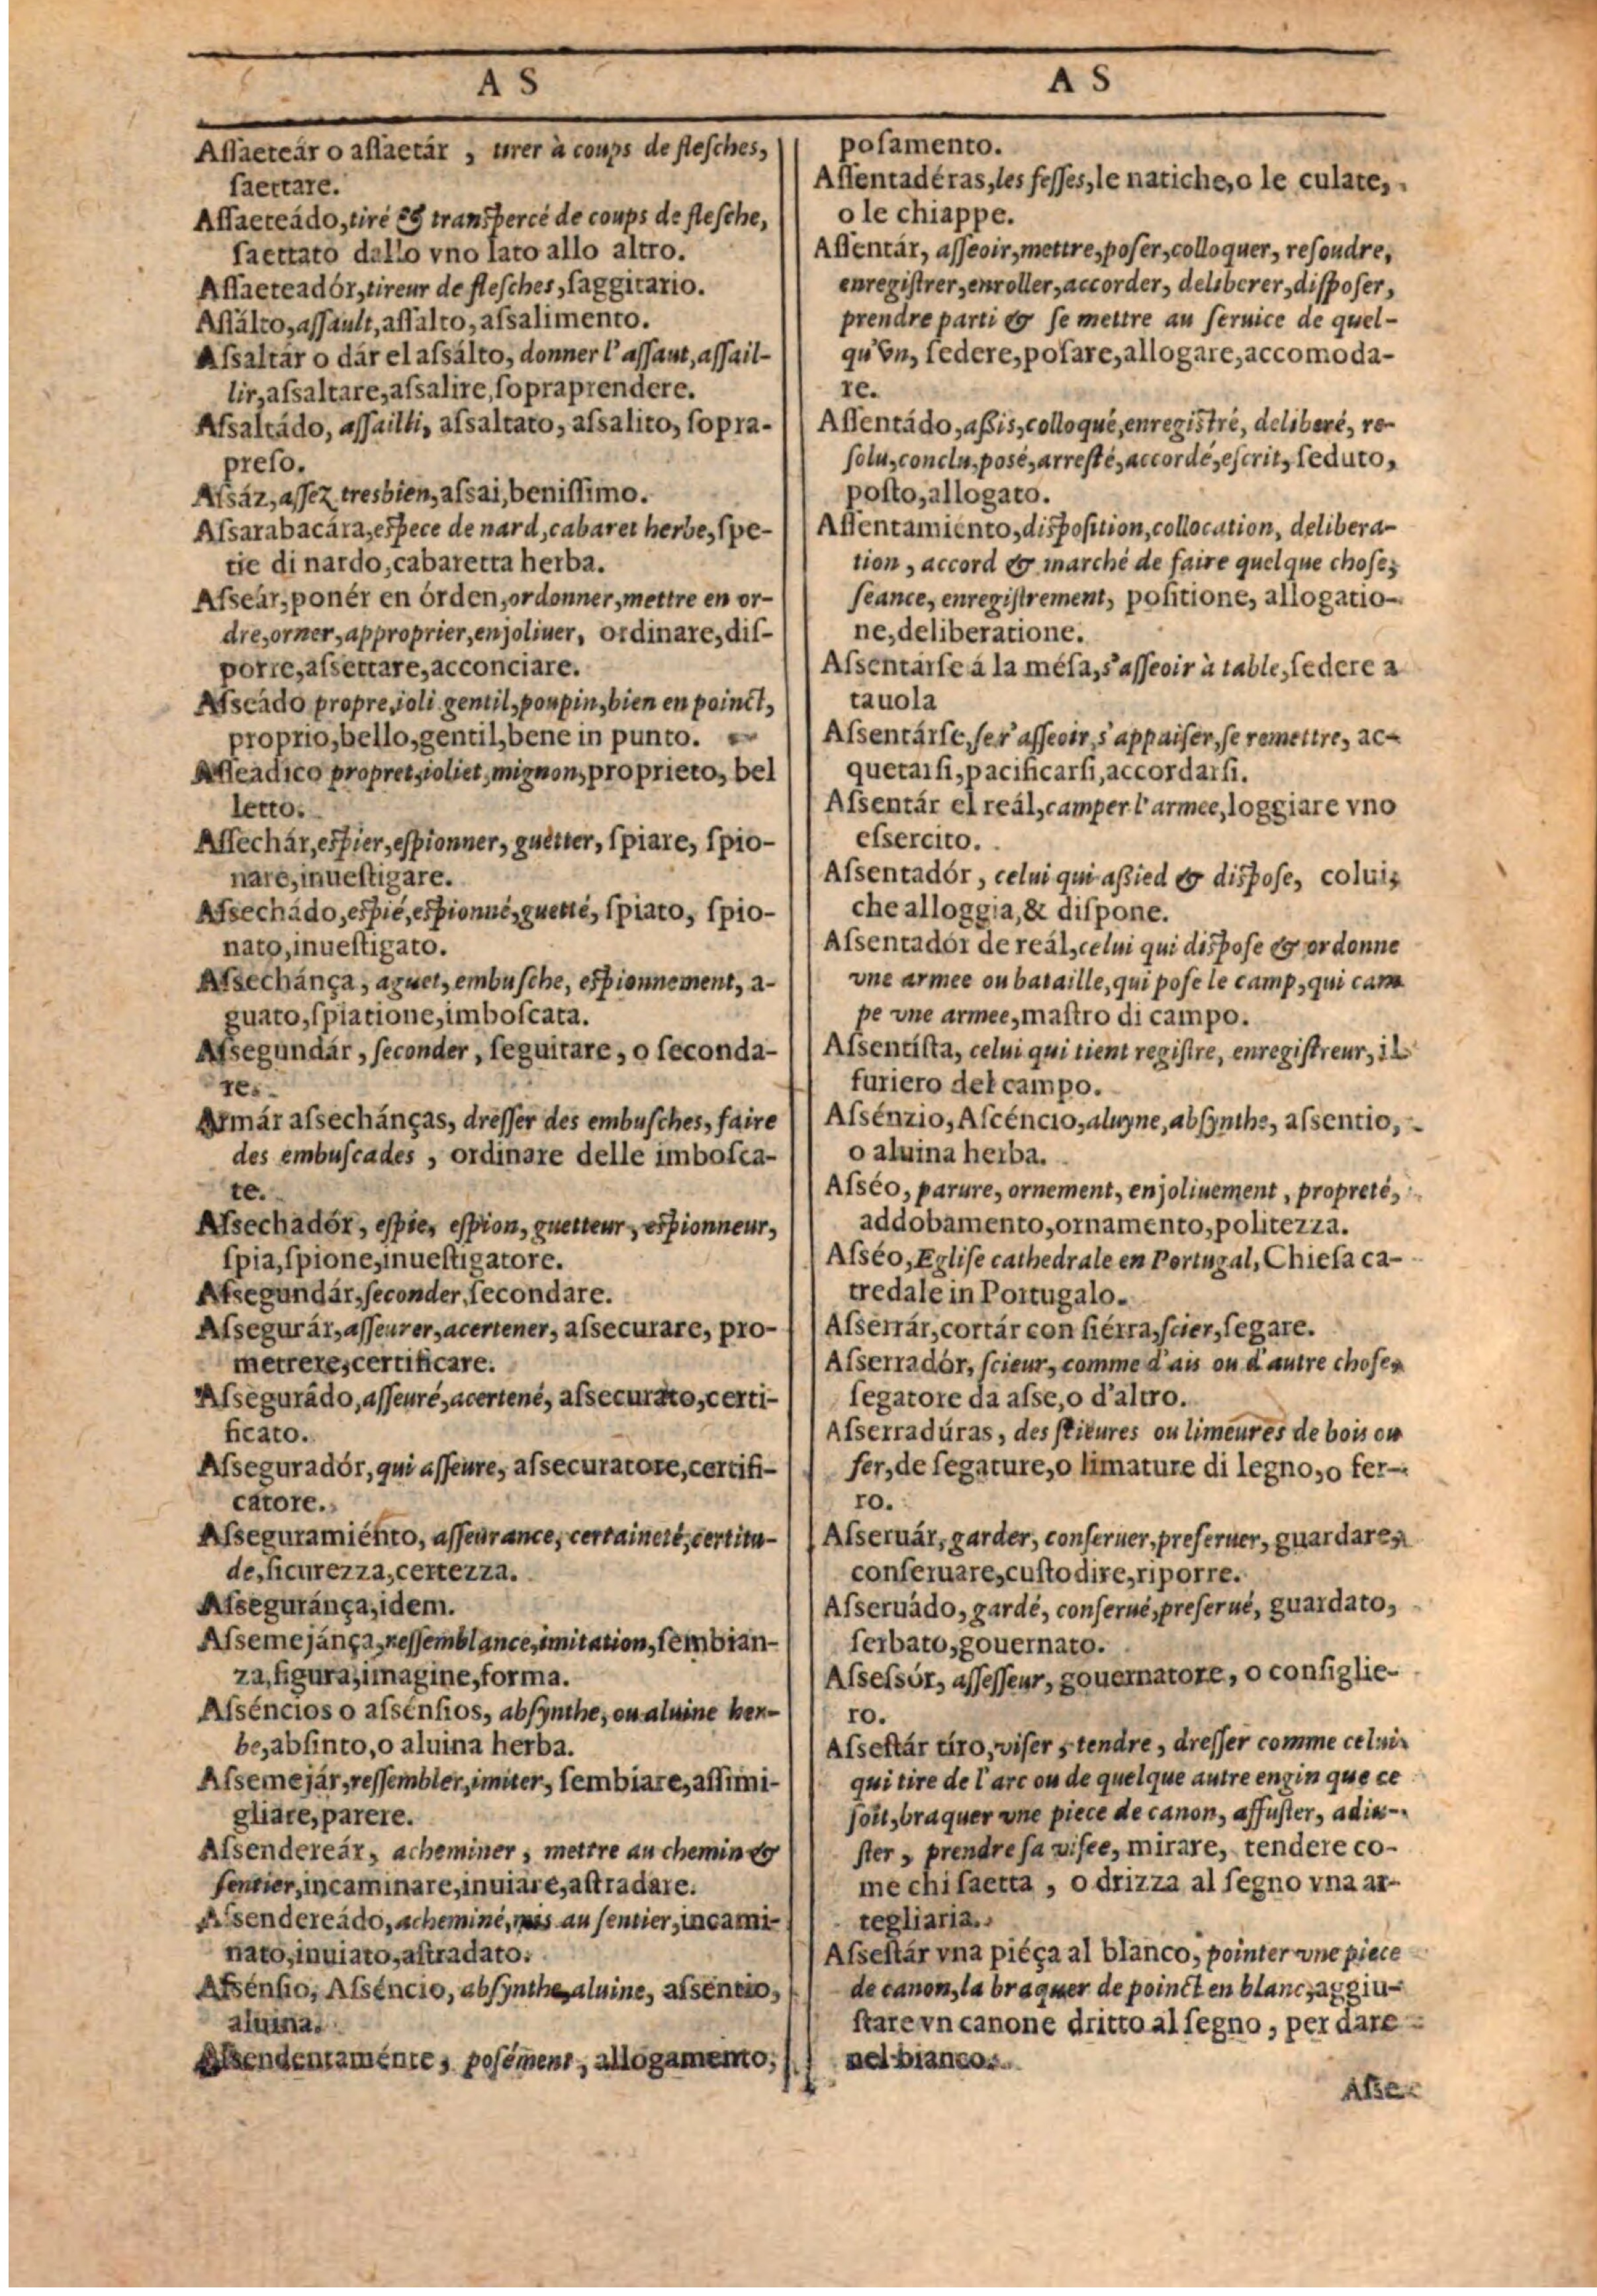 A S
Aſſaeteár o aſſaetár , tirer à coups de fleſches,
ſaettare.
Aſſaeteádo, tiré & tranſpercé de coups de fleſche,
ſaettato dallo vno lato allo altro.
Aſſaeteadór, tireur de fleſches, ſaggitario.
Aſſálto, aſſault, aſſalto, aſsalimento.
Aſsaltár o dár el aſsálto, donner l'aſſaut, aſſail-
lir, aſsaltare, aſsalire, ſopraprendere.
Aſsaltádo, aſſailli, aſsaltato, aſsalito, ſopra-
preſo.
Aſsáz, aſſez tresbien, aſsai, beniſſimo.
Aſsarabacára, eſpece de nard, cabaret herbe, ſpe-
tie di nardo, cabaretta herba.
Aſseár, ponér en órden, ordonner, mettre en or-
dre, orner, approprier, enjoliuer, ordinare, diſ-
porre, aſsettare, acconciare.
Aſseádo propre, ioli gentil, poupin, bien en poinct,
proprio, bello, gentil, bene in punto.
Aſſeadico propret, ioliet, mignon, proprieto, bel
letto.
Aſſechár, eſpier, eſpionner, guetter, ſpiare, ſpio-
nare, inueſtigare.
Aſsechádo, eſpié, eſpionné, guetté, ſpiato, ſpio-
nato, inueſtigato.
Aſsechánça, aguet, embuſche, eſpionnement, a-
guato, ſpiatione, imboſcata.
Aſsegundár, ſeconder, ſeguitare, o ſeconda-
re.
Armár aſsechánças, dreſſer des embuſches, faire
des embuſcades , ordinare delle imboſca-
te.
Aſsechadór, eſpie, eſpion, guetteur, eſpionneur,
ſpia, ſpione, inueſtigatore.
Aſsegundár, ſeconder, ſecondare.
Aſsegurár, aſſeurer, acertener, aſsecurare, pro-
mettere, certificare.
Aſsegurádo, aſſeuré, acertené, aſsecurato, certi-
ficato.
Aſsegurádór, qui aſſeure, aſsecuratore, certifi-
catore.
Aſseguramiénto, aſſeurance, certaineté, certitu-
de, ſicurezza, certezza.
Aſseguránça, idem.
Aſsemejánça, reſſemblance, imitation, ſembian-
za, figura, imagine, forma.
Aſséncios o aſsénſios, abſynthe, ou aluine her-
be, abſinto, o aluina herba.
Aſsemejár, reſſembler, imiter, ſembiare, aſſimi-
gliare, parere.
Aſsendereár, acheminer, mettre au chemin &
ſentier, incaminare, inuiare, aſtradare.
Aſsendereádo, acheminé, mis au ſentier, incami-
nato, inuiato, aſtradato.
Aſsénſio, Aſséncio, abſynthe, aluine, aſsentio,
aluina.
Aſsendentaménte, poſément, allogamento,
A S
poſamento.
Aſſentadéras, les feſſes, le natiche, o le culate,
o le chiappe.
Aſſentár, aſſeoir, mettre, poſer, colloquer, reſoudre,
enregiſtrer, enroller, accorder, deliberer, diſpoſer,
prendre parti & ſe mettre au ſeruice de quel-
qu'vn, ſedere, poſare, allogare, accomoda-
re.
Aſſentádo, aßis, colloqué, enregiſtré, deliberé, re-
ſolu, conclu, posé, arreſté, accordé, eſcrit, ſeduto,
poſto, allogato.
Aſſentamiénto, diſpoſition, collocation, delibera-
tion, accord & marché de faire quelque choſe,
ſeance, enregiſtrement, poſitione, allogatio-
ne, deliberatione.
Aſsentárſe á la méſa, s'aſſeoir à table, ſedere a
tauola
Aſsentárſe, ſe s'aſſeoir, s'appaiſer, ſe remettre, ac-
quetarſi, pacificarſi, accordarſi.
Aſsentár el reál, camper l'armee, loggiare vno
eſsercito.
Aſsentadór, celui qui aßied & diſpoſe, colui,
che alloggia, & diſpone.
Aſsentadór de reál, celui qui diſpoſe & ordonne
vne armee ou bataille, qui poſe le camp, qui cam
pe vne armee, maſtro di campo.
Aſsentíſta, celui qui tient regiſtre, enregiſtreur, il
furiero del campo.
Aſsénzio, Aſcéncio, aluyne, abſynthe, aſsentio,
o aluina herba.
Aſséo, parure, ornement, enjoliuement, propreté,
addobamento, ornamento, politezza.
Aſséo, Egliſe cathedrale en Portugal, Chieſa ca-
tredale in Portugalo.
Aſserrár, cortár con ſiérra, ſcier, ſegare.
Aſserradór, ſcieur, comme d'ais ou d'autre choſe,
ſegatore da aſse, o d'altro.
Aſserradúras, des ſcieures ou limeures de bois ou
fer, de ſegature, o limature di legno, o fer-
ro.
Aſseruár, garder, conſeruer, preſeruer, guardare,
conſeruare, cuſtodire, riporre.
Aſseruádo, gardé, conſerué, preſerué, guardato,
ſerbato, gouernato.
Aſseſsór, aſſeſſeur, gouernatore, o conſiglie-
ro.
Aſseſtár tíro, viſer, tendre, dreſſer comme celui
qui tire de l'arc ou de quelque autre engin que ce
ſoit, braquer vne piece de canon, affuſter, adiu-
ſter, prendre ſa viſee, mirare, tendere co-
me chi ſaetta , o drizza al ſegno vna ar-
tegliaria.
Aſseſtár vna piéça al blanco, pointer vne piece
de canon, la braquer de poinct en blanc, aggiu-
ſtare vn canone dritto al ſegno, per dare
nel bianco.
Aſſe-